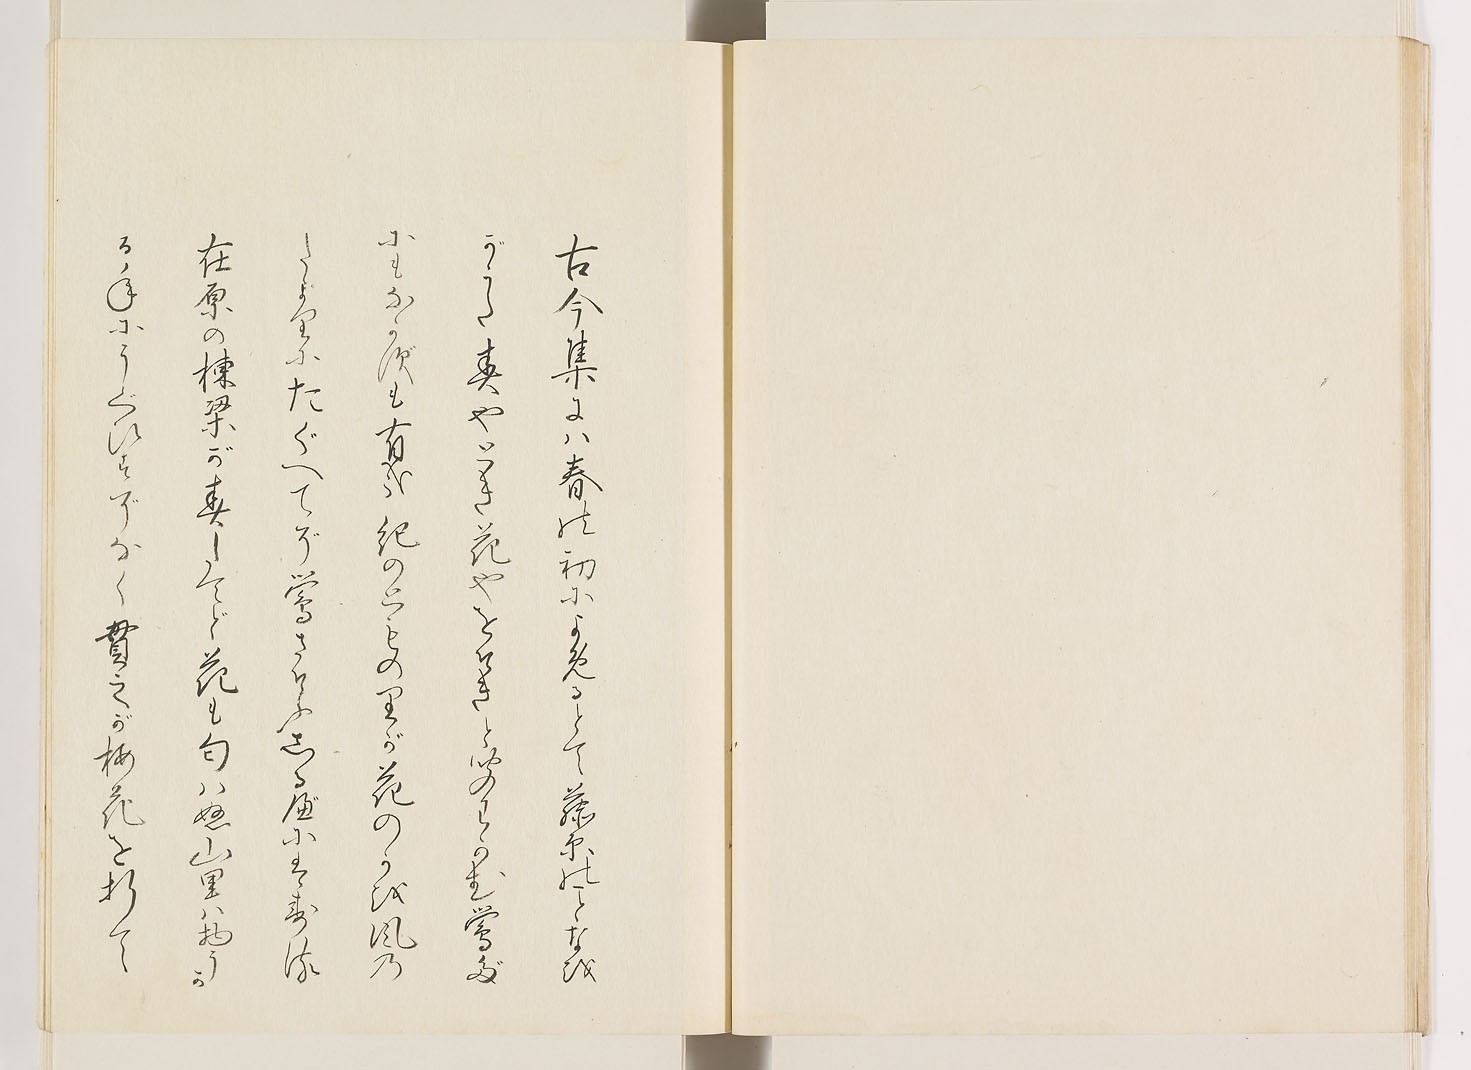 古今集には春の初によめるとて藤原のことなほ
がうた春やとき花やをそきと聞わかむ鶯だ
にもなかずも有哉紀のとものりが花のかを風の
たよりにたぐへてぞ鶯さそふしるべにはする
在原の棟梁が春たてど花も匂はぬ山里は物うか
るねにうぐひすぞなく貫之が梅花を折て